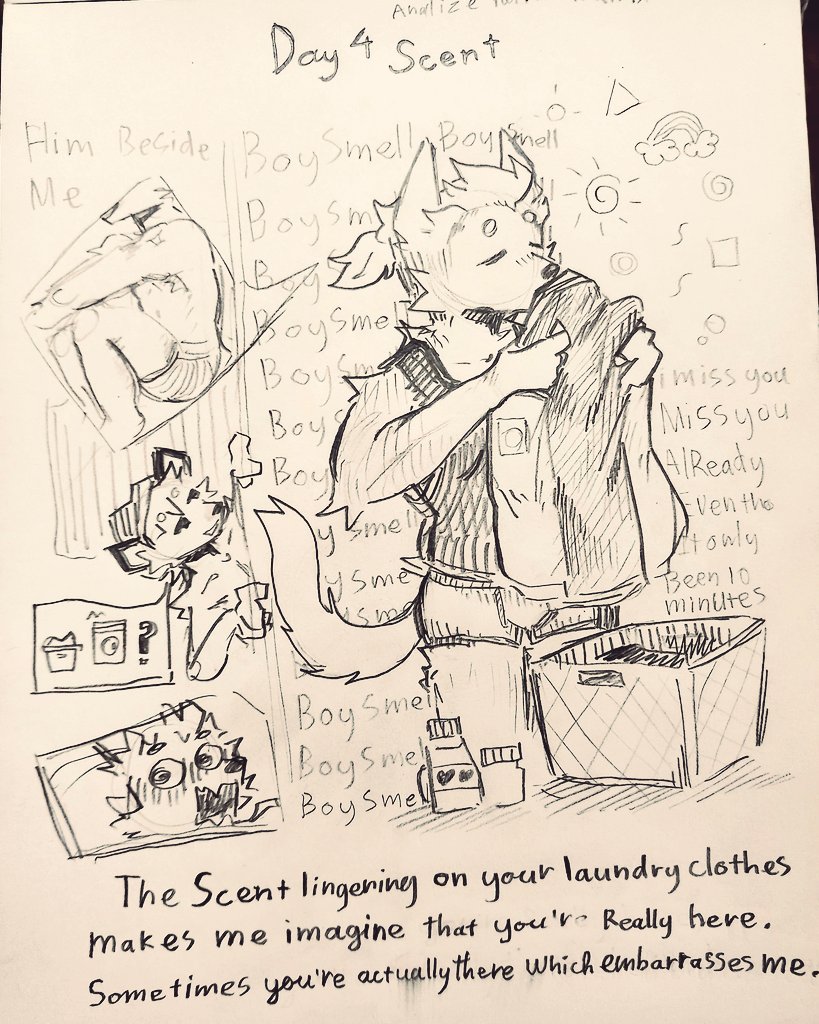 Analize
Day 4 Scent
Him Beside
Me
Boy Smell Boy Smell
Boy Sm
Boy S
Boy Sme
Boy Sme
Boy S
Boy
Boy
y smell
y sme
sme
B
Boy Smel
Boy Smel
Boy Sme
i miss you
Miss you
AlReady
Even tho
It only
Been 10
minutes
?
The Scent lingering on your laundry clothes
makes me imagine that you're Really here.
Sometimes you're actually there which embarrasses me.